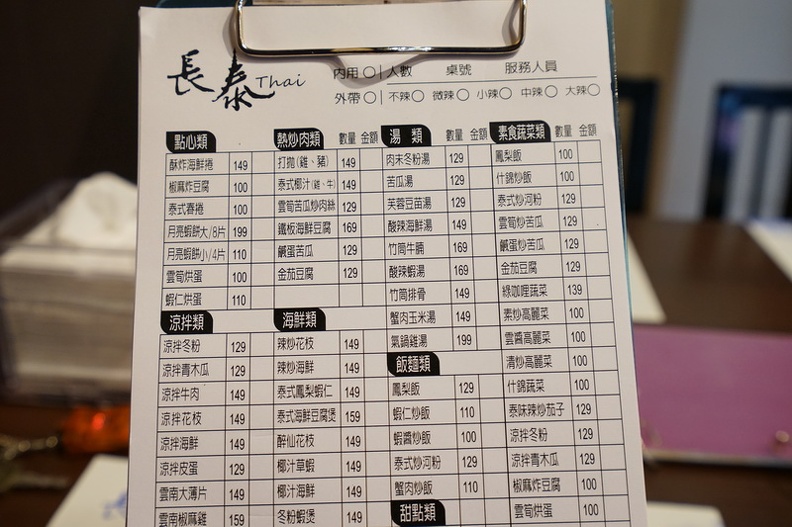 長泰 Thai
內用○ 人數 桌號 服務人員
外帶○ 不辣○ 微辣○ 小辣○ 中辣○ 大辣○
點心類
酥炸海鮮捲 149
椒麻炸豆腐 100
泰式春捲 100
月亮蝦餅大/8片 199
月亮蝦餅小/4片 110
雲筍烘蛋 100
蝦仁烘蛋 110
涼拌類
涼拌冬粉 129
涼拌青木瓜 129
涼拌牛肉 149
涼拌花枝 149
涼拌海鮮 149
涼拌皮蛋 129
雲南大薄片 149
雲南椒麻雞 159
熱炒肉類 數量 金額
打拋(雞、豬) 149
泰式椰汁(雞、牛) 149
雲筍苦瓜炒肉絲 129
鐵板海鮮豆腐 169
鹹蛋苦瓜 129
金茄豆腐 129
海鮮類
辣炒花枝 149
辣炒海鮮 149
泰式鳳梨蝦仁 149
泰式海鮮豆腐煲 159
醉仙花枝 149
椰汁草蝦 149
椰汁海鮮 149
冬粉蝦煲 149
湯 類 數量 金額
肉末冬粉湯 129
苦瓜湯 129
芙蓉豆苗湯 129
酸辣海鮮湯 149
竹筒牛腩 169
酸辣蝦湯 169
竹筒排骨 149
蟹肉玉米湯 149
氣鍋雞湯 199
飯麵類
鳳梨飯 129
蝦仁炒飯 110
蝦醬炒飯 100
泰式炒河粉 129
蟹肉炒飯 110
甜點類
素食蔬菜類 數量 金額
鳳梨飯 100
什錦炒飯 100
泰式炒河粉 129
雲筍炒苦瓜 129
鹹蛋炒苦瓜 129
金茄豆腐 129
綠咖哩蔬菜 139
素炒高麗菜 100
雲醬高麗菜 100
清炒高麗菜 100
什錦蔬菜 100
泰味辣炒茄子 129
涼拌冬粉 129
涼拌青木瓜 129
椒麻炸豆腐 100
雲筍烘蛋 100